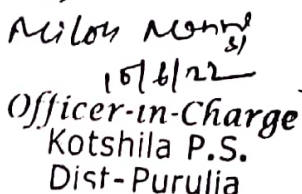 Milon
SI
15/6/22
Officer-in-Charge
Kotshila P.S.
Dist-Purulia